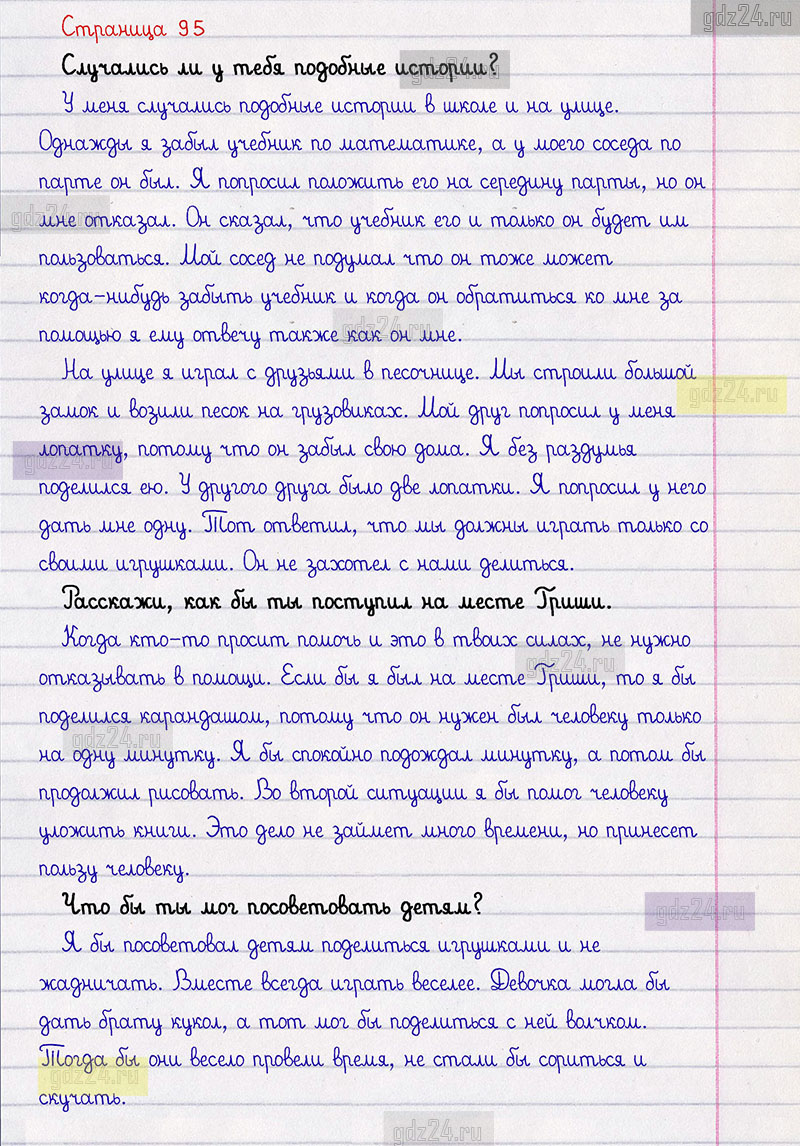 gdz24.ru
Страница 95
Случались ли у тебя подобные истории?
gdz24.ru
У меня случались подобные истории в школе и на улице.
Однажды я забыл учебник по математике, а у моего соседа по
парте он был. Я попросил положить его на середину парты, но он
gdz24.ru
мне отказал. Он сказал, что учебник его и только он будет им
пользоваться. Мой сосед не подумал что он тоже может
когда-нибудь забыть учебник и когда он обратиться ко мне за
gdz24.ru
помощью я ему отвечу также как он мне.
На улице я играл с друзьями в песочнице. Мы строили большой
gdz24.ru
замок и возили песок на грузовиках. Мой друг попросил у меня
лопатку, потому что он забыл свою дома. Я без раздумья
gdz24.ru
поделился ею. У другого друга было две лопатки. Я попросил у него
дать мне одну. Тот ответил, что мы должны играть только со
своими игрушками. Он не захотел с нами делиться.
Расскажи, как бы ты поступил на месте Гриши.
Когда кто-то просит помочь и это в твоих силах, не нужно
gdz24.ru
отказывать в помощи. Если бы я был на месте Гриши, то я бы
поделился карандашом, потому что он нужен был человеку только
gdz24.ru
на одну минутку. Я бы спокойно подождал минутку, а потом бы
продолжил рисовать. Во второй ситуации я бы помог человеку
уложить книги. Это дело не займет много времени, но принесет
пользу человеку.
Что бы ты мог посоветовать детям?
gdz24.ru
Я бы посоветовал детям поделиться игрушками и не
жадничать. Вместе всегда играть веселее. Девочка могла бы
дать брату кукол, а тот мог бы поделиться с ней волчком.
Тогда бы они весело провели время, не стали бы сориться и
gdz24.ru
скучать.
gdz24.ru